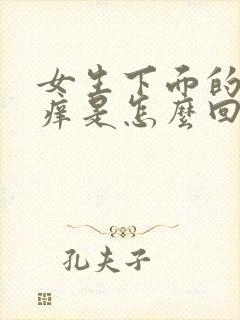 女生下面的
痒是怎麼回
孔夫子